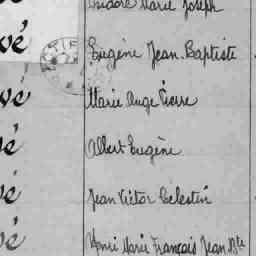 Isidore Marie Joseph
vé Eugène Jean Baptiste
vé Marie Ange Pierre
vé Albert Eugène
vé Jean Victor Célestin
vé Henri Marie François Jean Bte